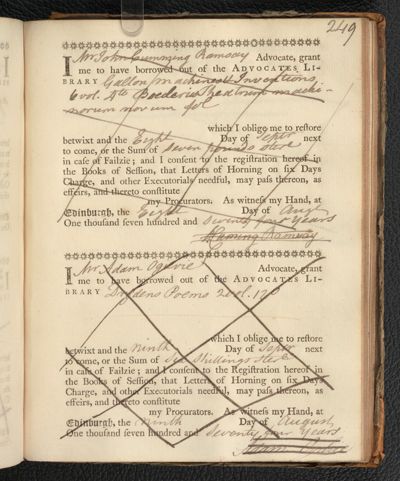 249
I Mr John Cumming Ramsay Advocate, grant
me to have borrowed out of the ADVOCATES LI-
BRARY Gallon machines & Inventions,
6 vol. 4to Boecleri theatrum machi-
narum novum fol
which I oblige me to reſtore
betwixt and the Eight Day of Septr next
to come, or the Sum of Seven pounds sterl
in caſe of Failzie; and I conſent to the regiſtration hereof in
the Books of Seſſion, that Letters of Horning on ſix Days
Charge, and other Executorials needful, may paſs thereon, as
effeirs, and thereto conſtitute
my Procurators. As witneſs my Hand, at
Edinburgh, the Eight Day of Augt
One thouſand ſeven hundred and seventy four Years
Cuming Ramsay
I Mr Adam Ogilvie Advocate, grant
me to have borrowed out of the ADVOCATES LI-
BRARY Drydens Poems 2 vol. 12o
which I oblige me to reſtore
betwixt and the ninth Day of Septr next
to come, or the Sum of Six Shillings sterl
in caſe of Failzie; and I conſent to the Regiſtration hereof in
the Books of Seſſion, that Letters of Horning on ſix Days
Charge, and other Executorials needful, may paſs thereon, as
effeirs, and thereto conſtitute
my Procurators. As witneſs my Hand, at
Edinburgh, the ninth Day of August
One thouſand ſeven hundred and seventy four Years
Adam Ogilvie